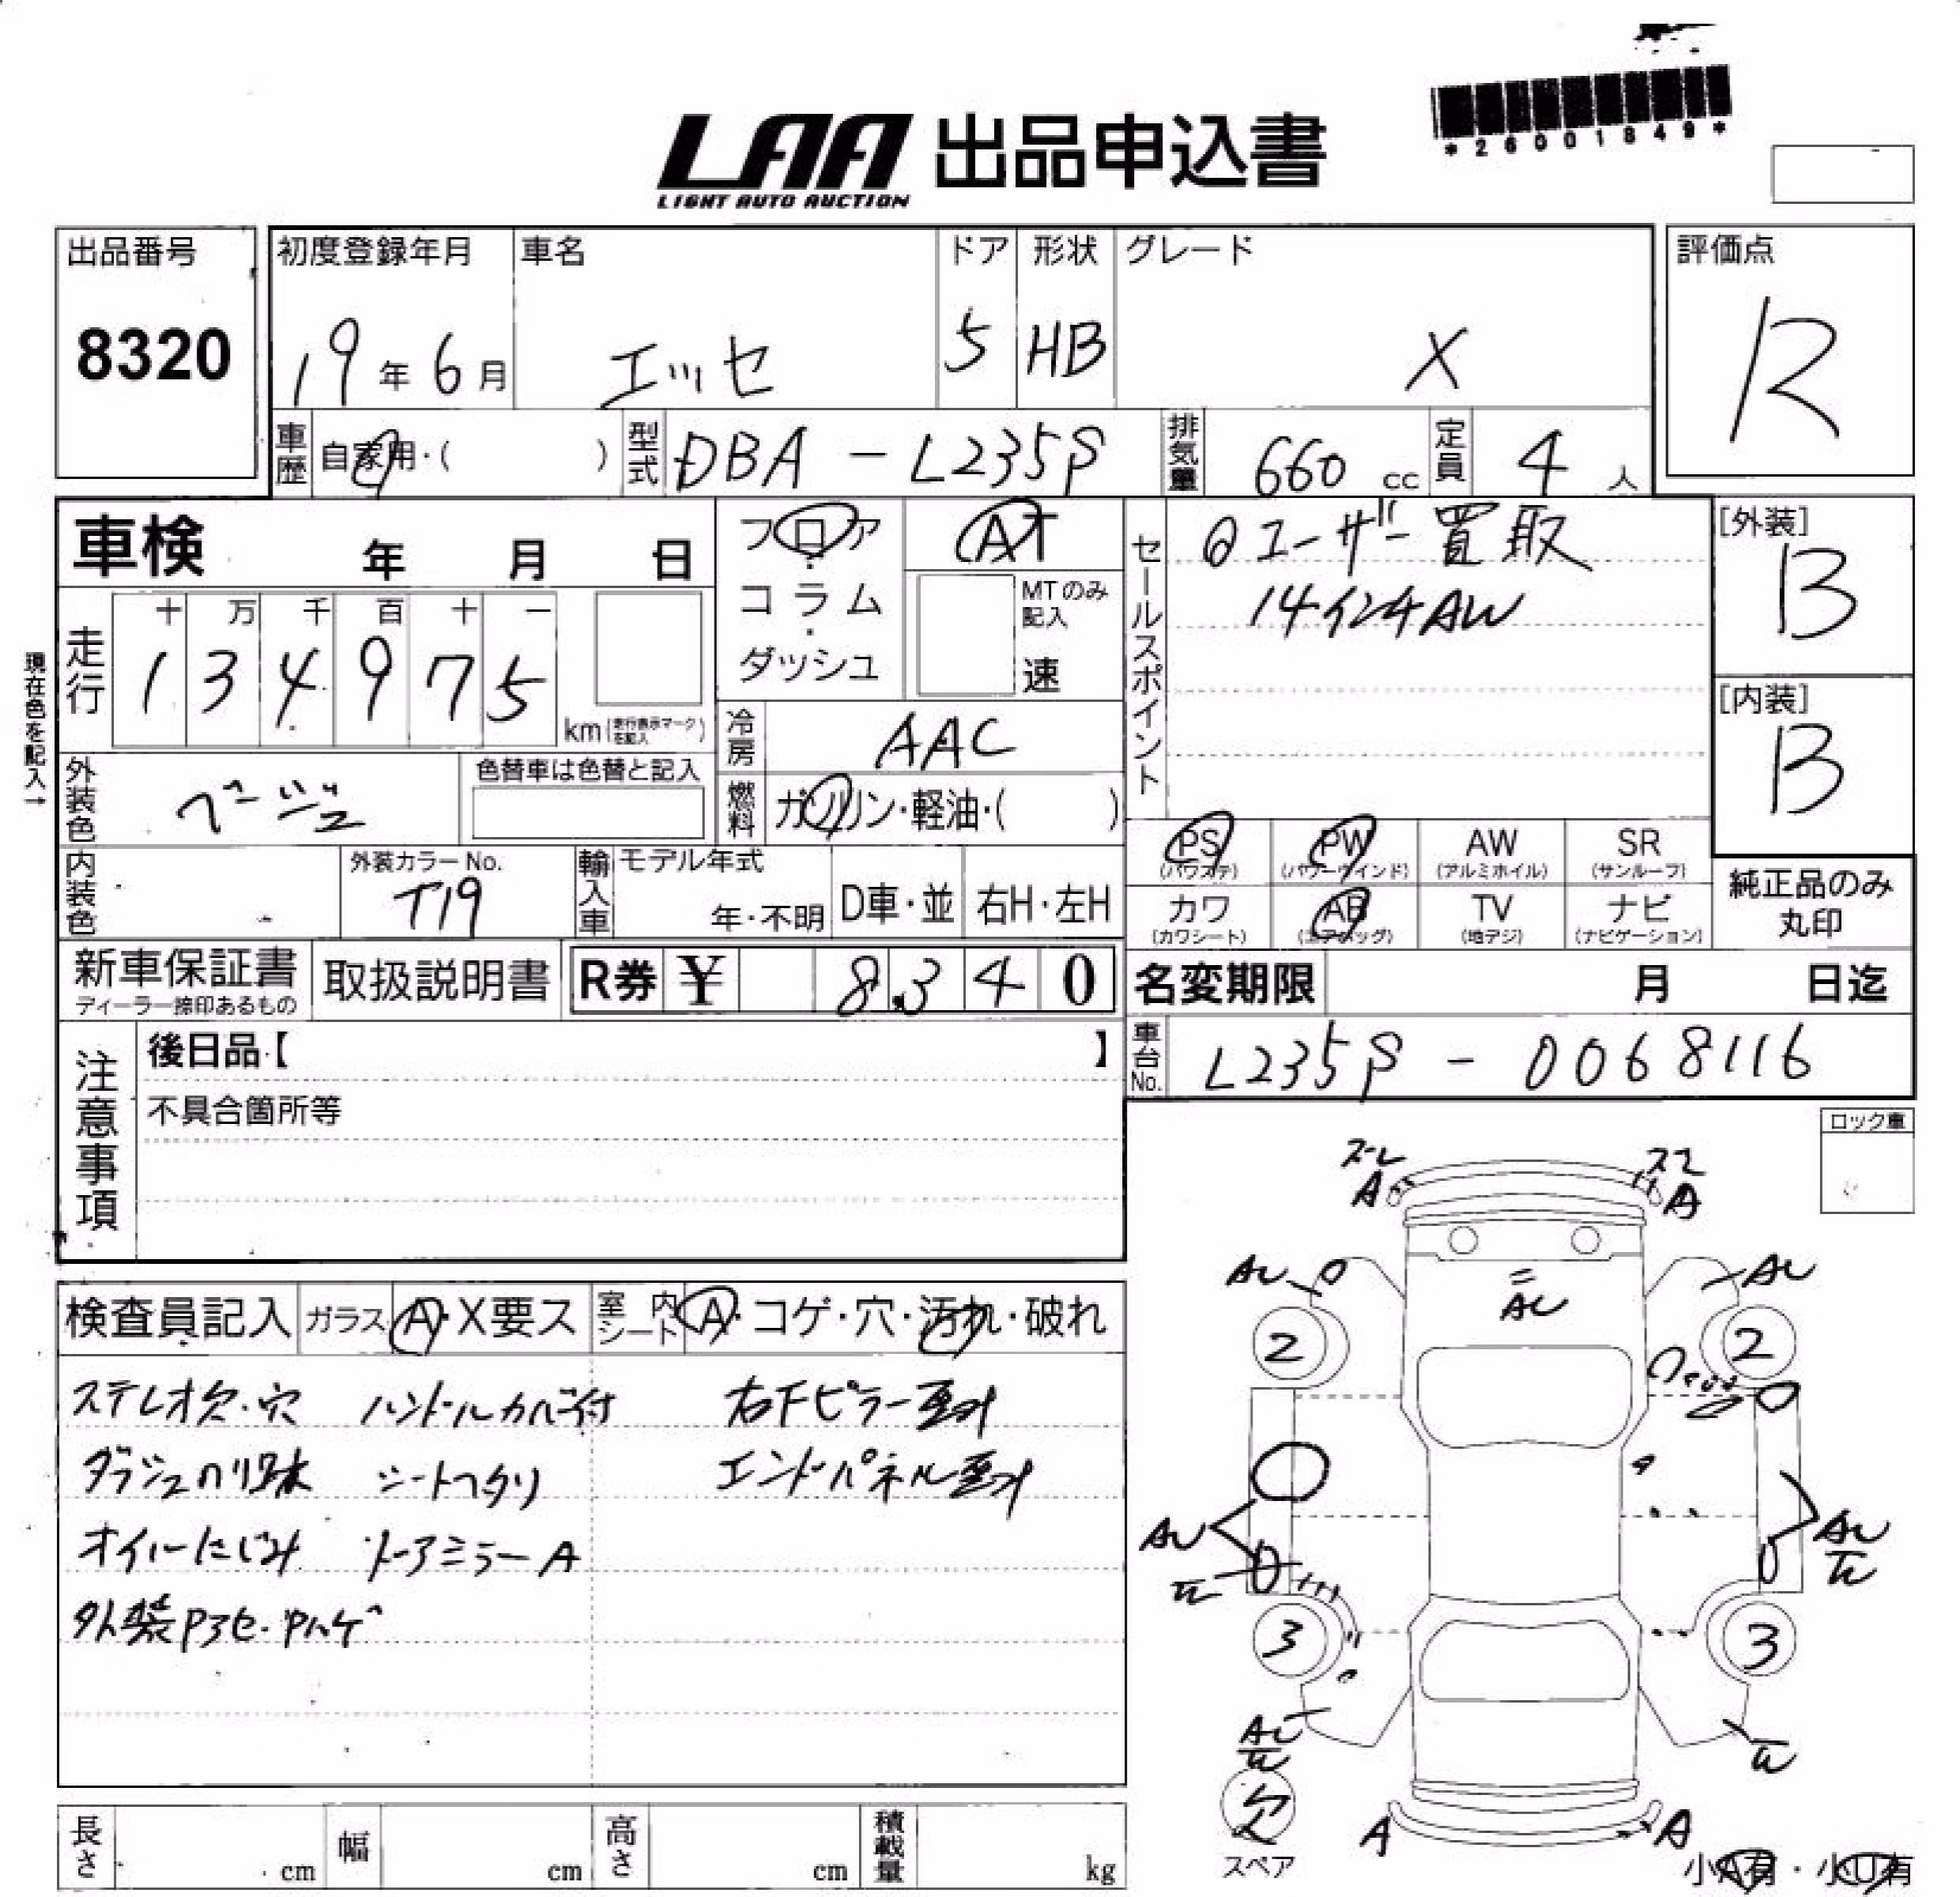 *26001849*
LAA 出品申込書
LIGHT AUTO AUCTION
出品番号
8320
初度登録年月
19年6月
車名
エッセ
ドア
5
形状
HB
グレード
X
評価点
R
車歴 自家用・( )
型式 DBA - L235S
排気量 660 cc
定員 4 人
車検 年 月 日
フロア・コラム・ダッシュ
AT
MTのみ記入
速
セールスポイント
ユーザー買取
14インチAW
[外装]
B
[内装]
B
現在色を記入→
走行
十 万 千 百 十 一
1 3 4 9 7 5
km(走行表示マークを記入)
冷房 AAC
燃料 ガソリン・軽油・( )
外装色 ベージュ
色替車は色替と記入
内装色
外装カラーNo.
T19
輸入車
モデル年式
年・不明
D車・並
右H・左H
PS (パワステ)
PW (パワーウインド)
AW (アルミホイル)
SR (サンルーフ)
カワ (カワシート)
AB (エアバッグ)
TV (地デジ)
ナビ (ナビゲーション)
純正品のみ丸印
新車保証書
ディーラー捺印あるもの
取扱説明書
R券 ¥ 8,340
名変期限 月 日迄
車台No. L235S - 0068116
注意事項
後日品【 】
不具合箇所等
ロック車
検査員記入
ガラス A・X要ス
室内シート A・コゲ・穴・汚れ・破れ
ステレオ欠・穴 ハンドルカバー付 右Fピラー
ダッシュのり跡 シートヘタリ エンドパネル
オイルにじみ ドアミラーA
外装
A
A
AU
AU
AU
2
2
AU
AU
3
3
AU
A
A
欠
スペア
小A有・小U有
長さ cm
幅 cm
高さ cm
積載量 kg